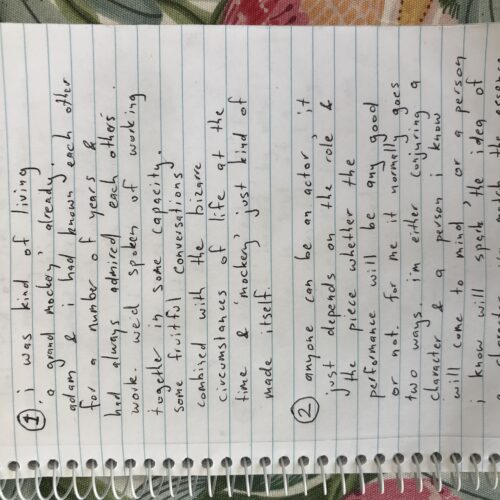 1 i was kind of living
'a grand mockery' already.
adam & i had known each other
for a number of years &
had always admired each others'
work. we'd spoken of working
together in some capacity.
some fruitful conversations
combined with the bizarre
circumstances of life at the
time & 'mockery' just kind of
made itself.
2 anyone can be an actor, it
just depends on the role &
the piece whether the
performance will be any good
or not. for me it normally goes
two ways. i'm either conjuring a
character & a person i know
will come to mind or a person
i know will spark the idea of
a character